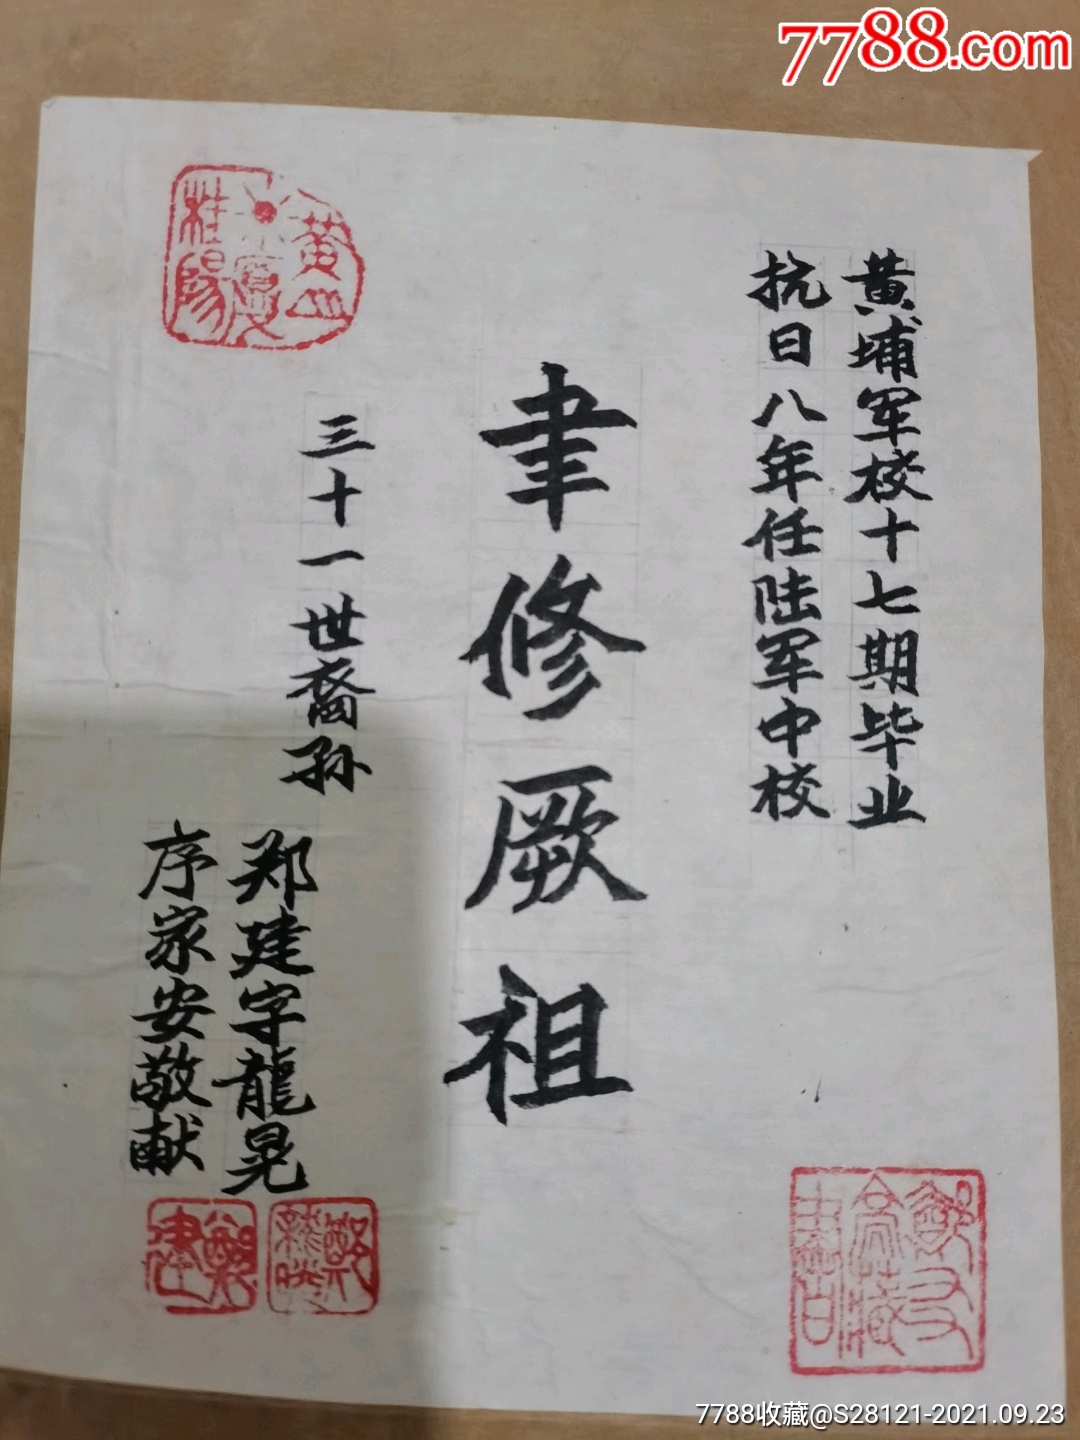 7788.com
黄埔军校十七期毕业
抗日八年任陆军中校
聿修厥祖
三十一世裔孙
郑建字龍晃
序家安敬献
7788收藏@S28121-2021.09.23